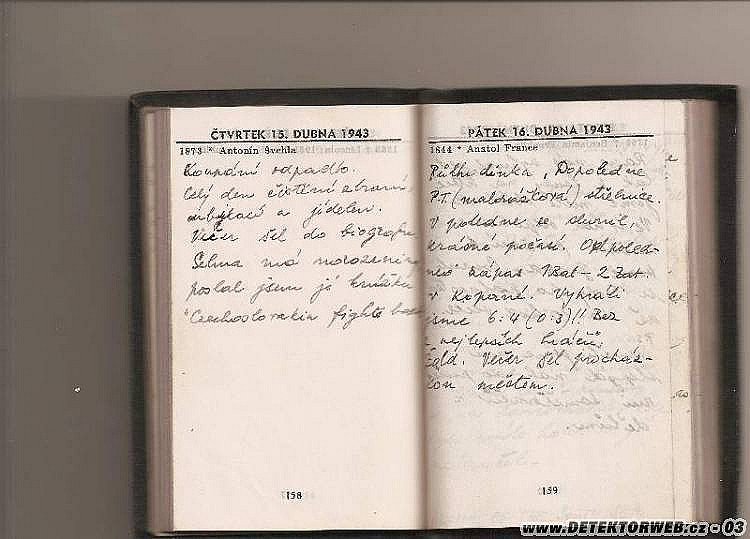 ČTVRTEK 15. DUBNA 1943
1873 * Antonín Švehla
Koupání odpadlo.
Celý den čištění zbraní,
a jídelen.
Večer šel do biografu
Selma má narozeniny
poslal jsem jí knížku
"Czechoslovakia fights back
158
PÁTEK 16. DUBNA 1943
1844 * Anatol France
Dopoledne
P.T. (malorážková) střelnice.
V poledne se slunil,
krásné počasí. Odpoled-
ne zápas 1Bat - 2 Bat.
v kopané. Vyhráli
jsme 6:4 (0:3)!! Bez
nejlepších hráčů;
Večer šel procház-
kou městem.
159
www.DETEKTORWEB.cz - 03